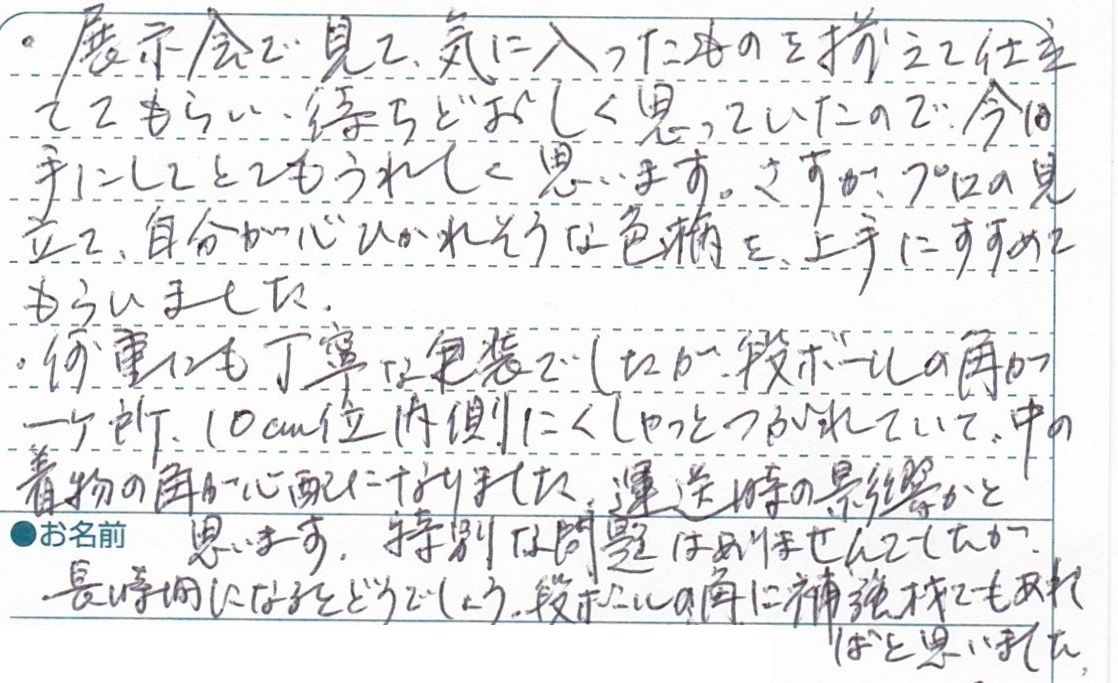 ・展示会で見て、気に入ったものを揃えて仕立
ててもらい、待ちどおしく思っていたので、今回
手にしてとてもうれしく思います。さすが、プロの見
立て、自分が心ひかれそうな色柄を、上手にすすめて
もらいました。
・何重にも丁寧な包装でしたが、段ボールの角が
一ヶ所、10cm位内側にくしゃっとつぶれていて、中の
着物の角が心配になりました。運送時の影響かと
●お名前 思います。特別な問題はありませんでしたが、
長時間になるとどうでしょう。段ボールの角に補強材でもあれ
ばと思いました。